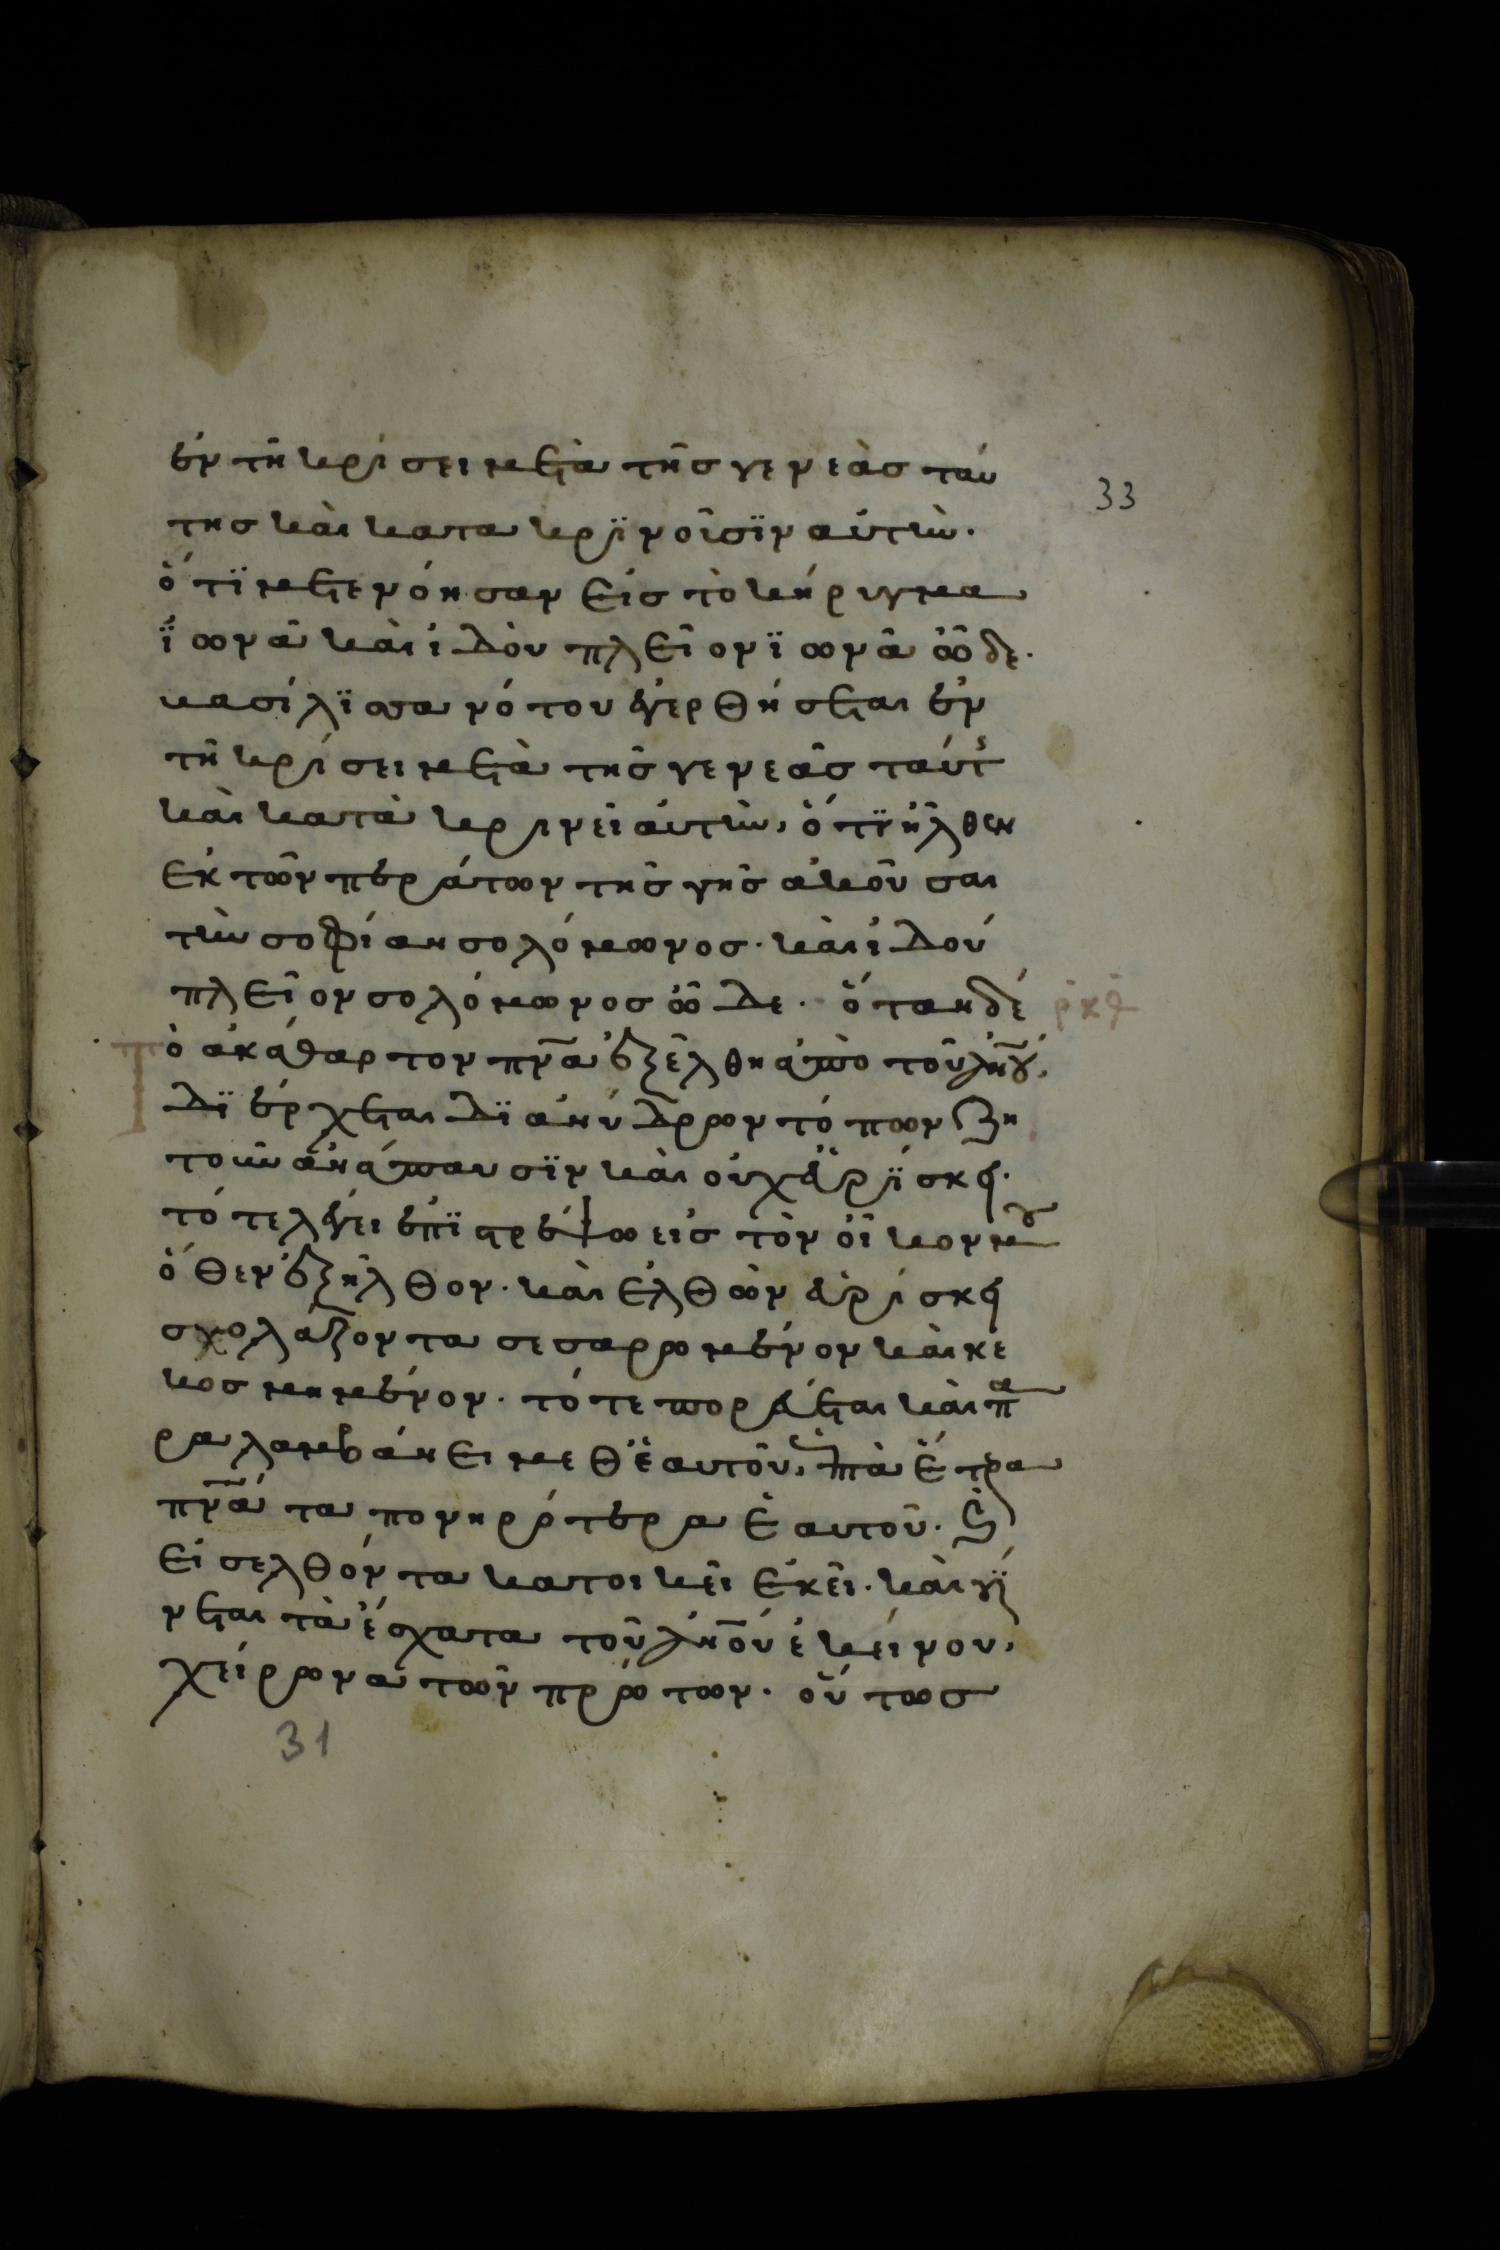 ἐν τῆ κρίσει μετὰ τῆς γενεὰς ταύ
της καὶ κατα κρϊνοῖσϊν αὐτὴν.
ὅτϊ μετενόησαν εἰς τὸ κήρυγμα
ϊωνᾶ καὶ ἰδὸυ πλεῖον ϊωνᾶ ὧδε.
33
βασίλϊσα νότου ἐγερθήσεται ἐν
τῆ κρίσει μετὰ τῆς γενεᾶς ταύτ
καὶ κατὰ κρινεῖ αὐτὴν, ὅτϊ ἦλθεν
ἐκ τῶν περάτων τῆς γῆς ἀκοῦσαι
τὴν σοφίαν σολόμωνος. καὶ ἰδού
πλεῖον σολόμωνος ὧδε. ὅταν δέ
τὸ ἀκάθαρτον πν̅α ἐξέλθη ἀπὸ τοῦ ἀν̅ου,
δϊέρχεται δϊ ἀνύδρων τόπων ζη
τοῦν ἀνάπαυσϊν καὶ οὐχ εὑρΐσκει.
τότε λέγει ἐπϊστρέψω εἰς τὸν οἶκον μου
ὅθεν ἐξῆλθον. καὶ ἐλθὼν εὑρίσκει
σχολάζοντα σεσαρωμένον καὶ κε
κοσμημένον. τότε πορεύεται καὶ πα
ραλαμβάνει μεθ ἑαυτοῦ, ἑπτὰ ἕτερα
πν̅ατα πονηρότερα ἑαυτοῦ. καὶ
εἰσελθόντα κατοικεῖ ἐκεῖ. καὶ γί
νεται τὰ ἔσχατα τοῦ ἀν̅ου ἐκείνου,
χείρωνα τῶν πρώτων. οὕτως
31